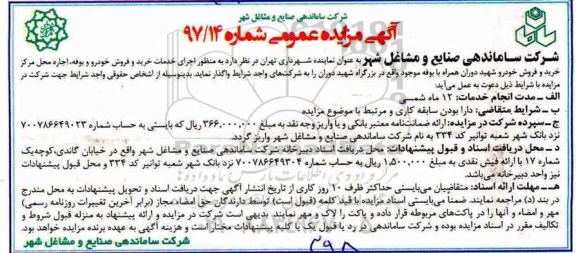 شرکت ساماندهی صنایع و مشاغل شهر
آگهی مزایده عمومی شماره ۹۷/۱۴
شرکت ساماندهی صنایع و مشاغل شهر به عنوان نماینده شهرداری تهران در نظر دارد به منظور اجرای خدمات خرید و فروش خودرو و بوفه، اجاره محل مرکز
خرید و فروش خودرو شهید دوران همراه با بوفه موجود واقع در بزرگراه شهید دوران را به شرکت‌های واجد شرایط واگذار نماید. بدینوسیله از اشخاص حقوقی واجد شرایط جهت شرکت در
مزایده با شرایط ذیل دعوت به عمل می‌آید:
الف - مدت انجام خدمات: ۱۲ ماه شمسی
ب - شرایط متقاضی: دارا بودن سابقه کاری و مرتبط با موضوع مزایده
ج - سپرده شرکت در مزایده: ارائه ضمانت‌نامه معتبر بانکی و یا واریز وجه نقد به مبلغ ۳۶۶,۰۰۰,۰۰۰ ریال که بایستی به حساب شماره ۷۰۰۷۸۶۶۴۹۰۲۳
نزد بانک شهر شعبه توانیر کد ۳۳۴ به نام شرکت ساماندهی صنایع و مشاغل شهر واریز گردد.
د - محل دریافت اسناد و قبول پیشنهادات: محل دریافت اسناد دبیرخانه شرکت ساماندهی صنایع و مشاغل شهر واقع در خیابان گاندی، کوچه یک
شماره ۱۷ با ارائه فیش نقدی به مبلغ ۱,۵۰۰,۰۰۰ ریال به حساب شماره ۷۰۰۷۸۶۶۴۹۳۰۴ نزد بانک شهر شعبه توانیر کد ۳۳۴ و محل قبول پیشنهادات
نیز واحد دبیرخانه می‌باشد.
هـ - مهلت ارائه اسناد: متقاضیان می‌بایستی حداکثر ظرف ۱۰ روز کاری از تاریخ انتشار آگهی جهت دریافت اسناد و تحویل پیشنهادات به محل مندرج
در بند (د) مراجعه نمایند. ضمناً می‌بایستی اسناد مزایده با قید کلمه (قبول است) توسط دارندگان حق امضاء مجاز (برابر آخرین تغییرات روزنامه رسمی)
مهر و امضاء و آنها را در پاکت‌های مربوطه قرار داده و پاکت را لاک و مهر نمایند. بدیهی است شرکت در مزایده و ارائه پیشنهاد به منزله قبول شروط و
تکالیف مقرر در اسناد مزایده بوده و شرکت ساماندهی در رد یا قبول یک یا کلیه پیشنهادات مختار است و هزینه آگهی به عهده برنده مزایده خواهد بود.
شرکت ساماندهی صنایع و مشاغل شهر